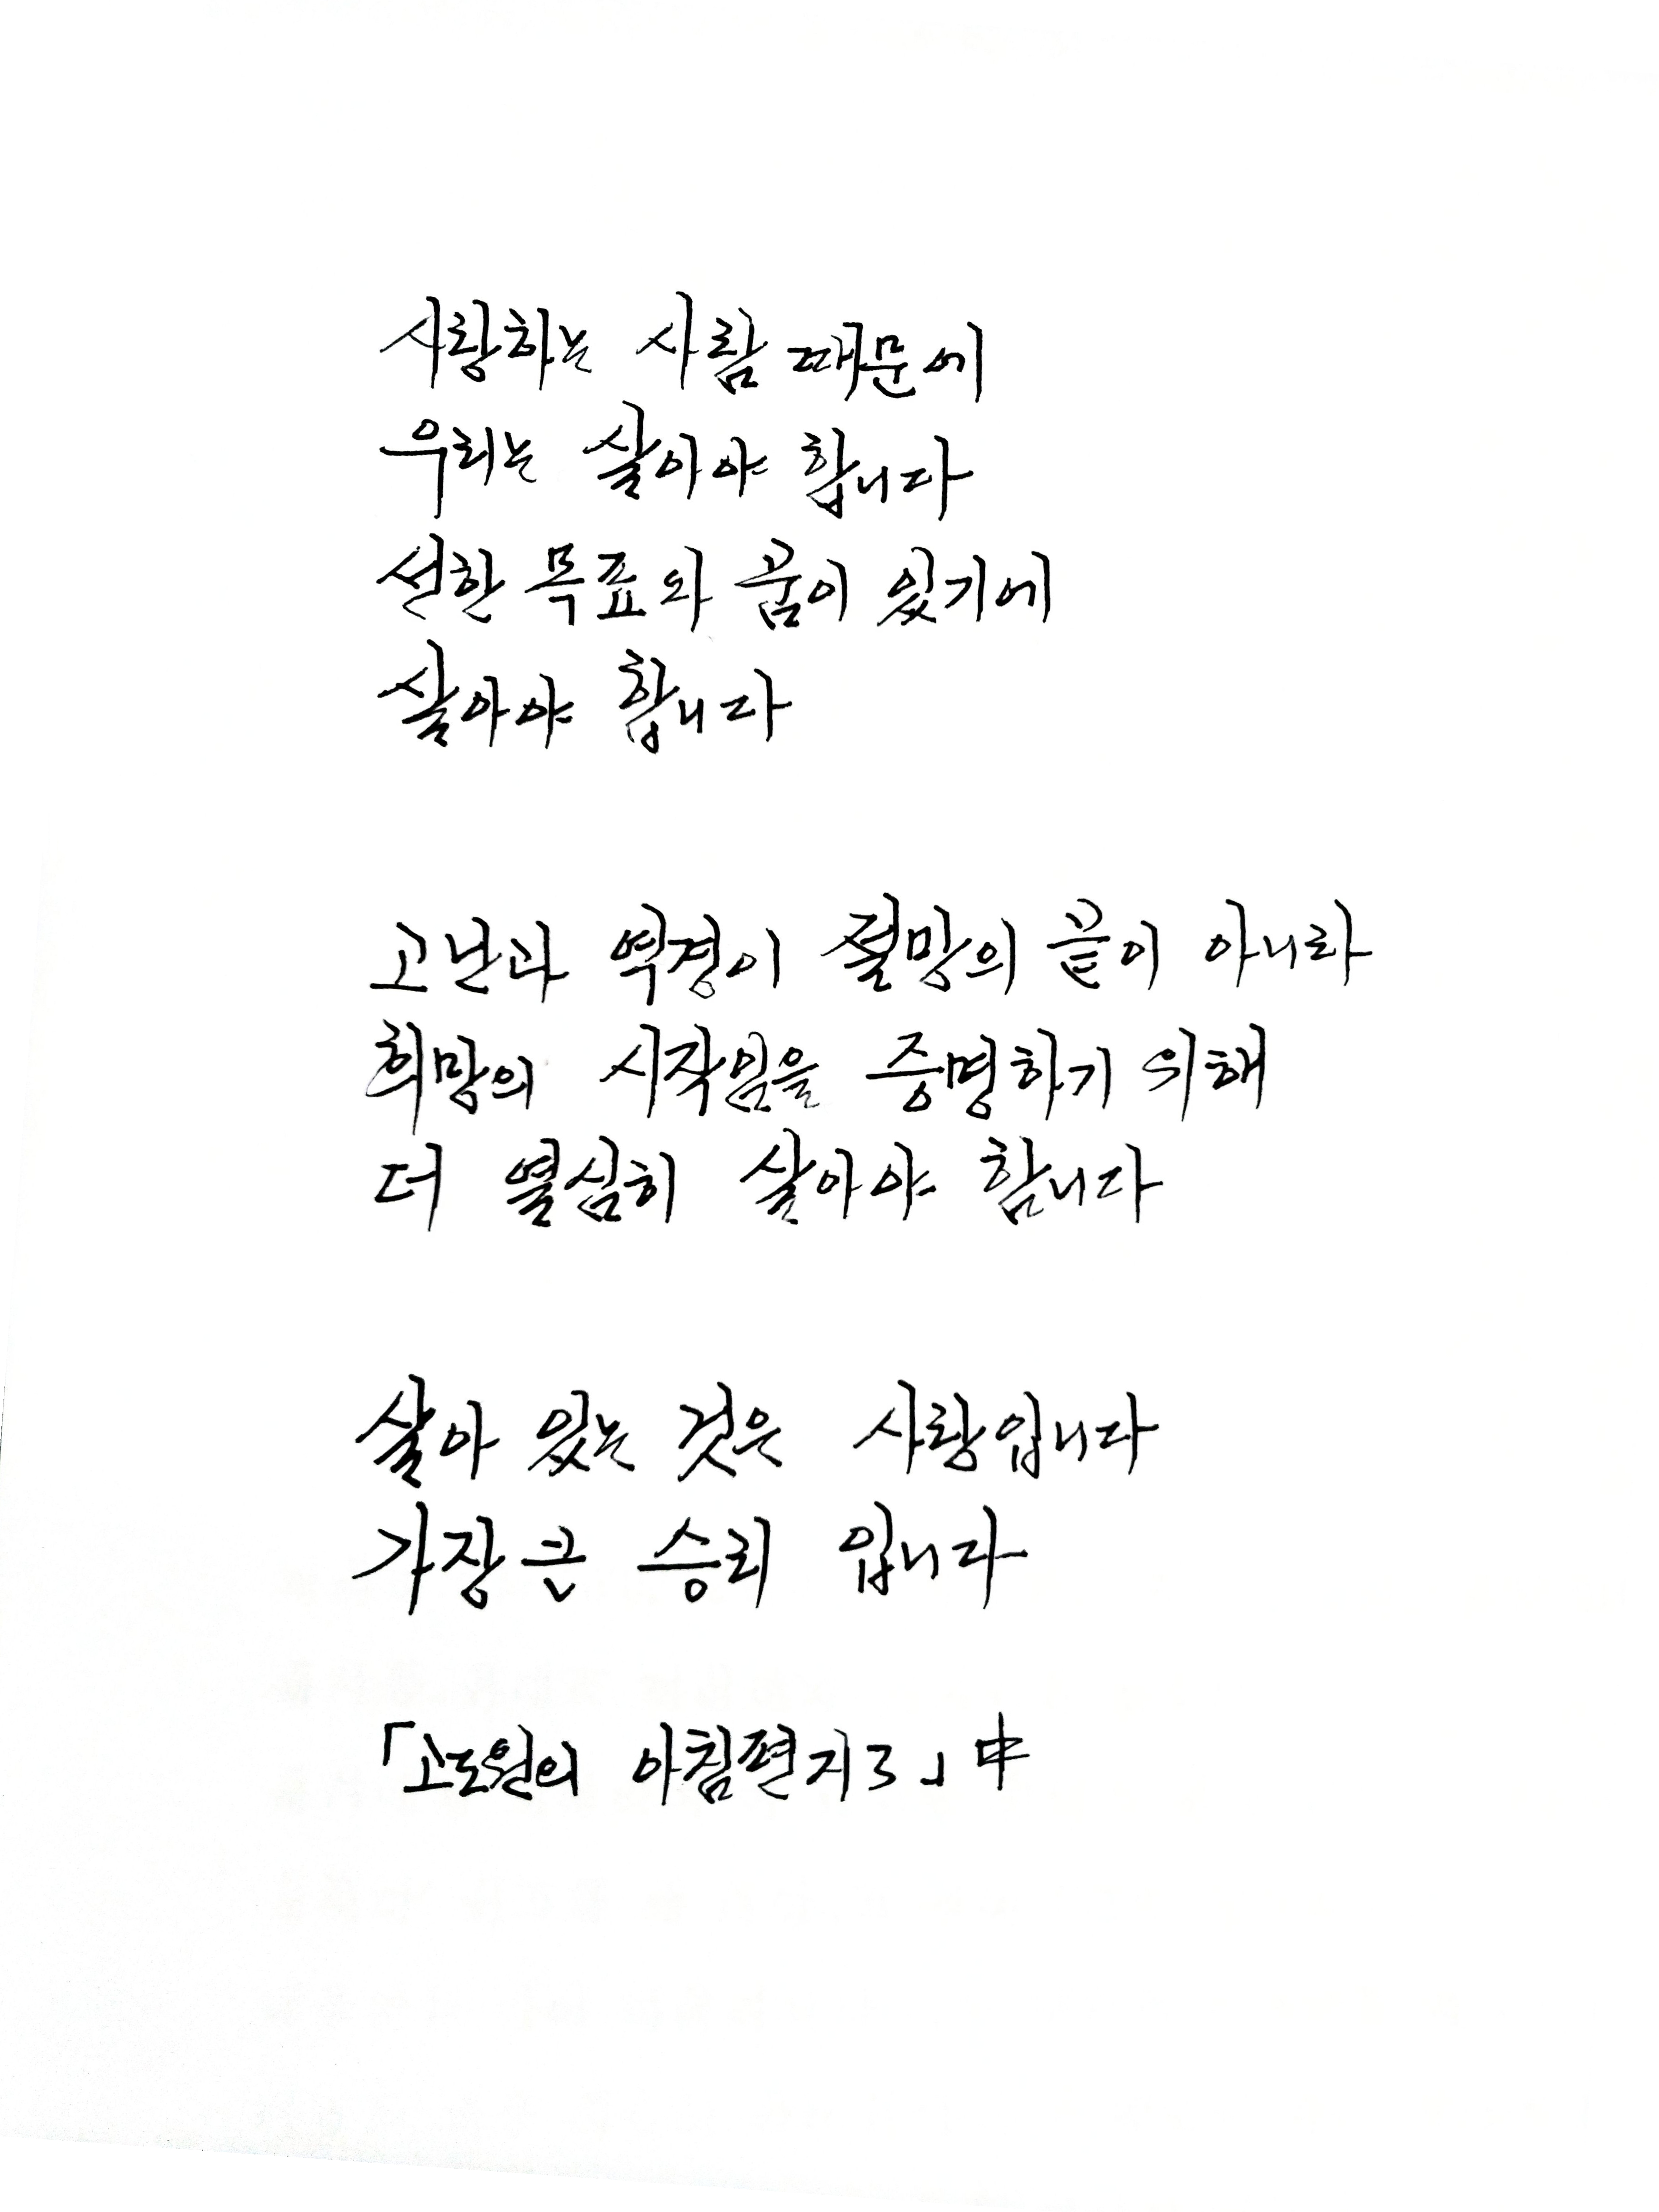 사랑하는 사람 때문에
우리는 살아야 합니다
선한 목표와 꿈이 있기에
살아야 합니다
고난과 역경이 절망의 끝이 아니라
희망의 시작임을 증명하기 위해
더 열심히 살아야 합니다
살아 있는 것은 사랑입니다
가장 큰 승리 입니다
「고도원의 아침편지3」中